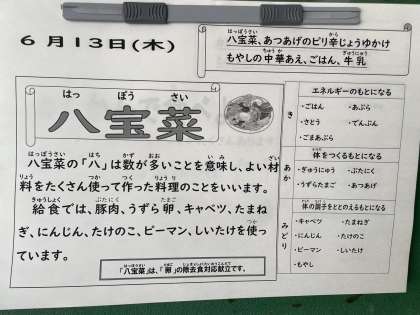 6月13日(木)
八宝菜、あつあげのピリ辛じょうゆかけ
もやしの中華あえ、ごはん、牛乳
八宝菜
八宝菜の「八」は数が多いことを意味し、よい材
料をたくさん使って作った料理のことをいいます。
給食では、豚肉、うずら卵、キャベツ、たまね
ぎ、にんじん、たけのこ、ピーマン、しいたけを使っ
ています。
「八宝菜」は、「卵」の除去食対応献立です。
エネルギーのもとになる
き
・ごはん ・あぶら
・さとう ・でんぷん
・ごまあぶら
体をつくるもとになる
あか
・ぎゅうにゅう ・ぶたにく
・うずらたまご ・あつあげ
体の調子をととのえるもとになる
みどり
・キャベツ ・たまねぎ
・にんじん ・たけのこ
・ピーマン ・しいたけ
・もやし